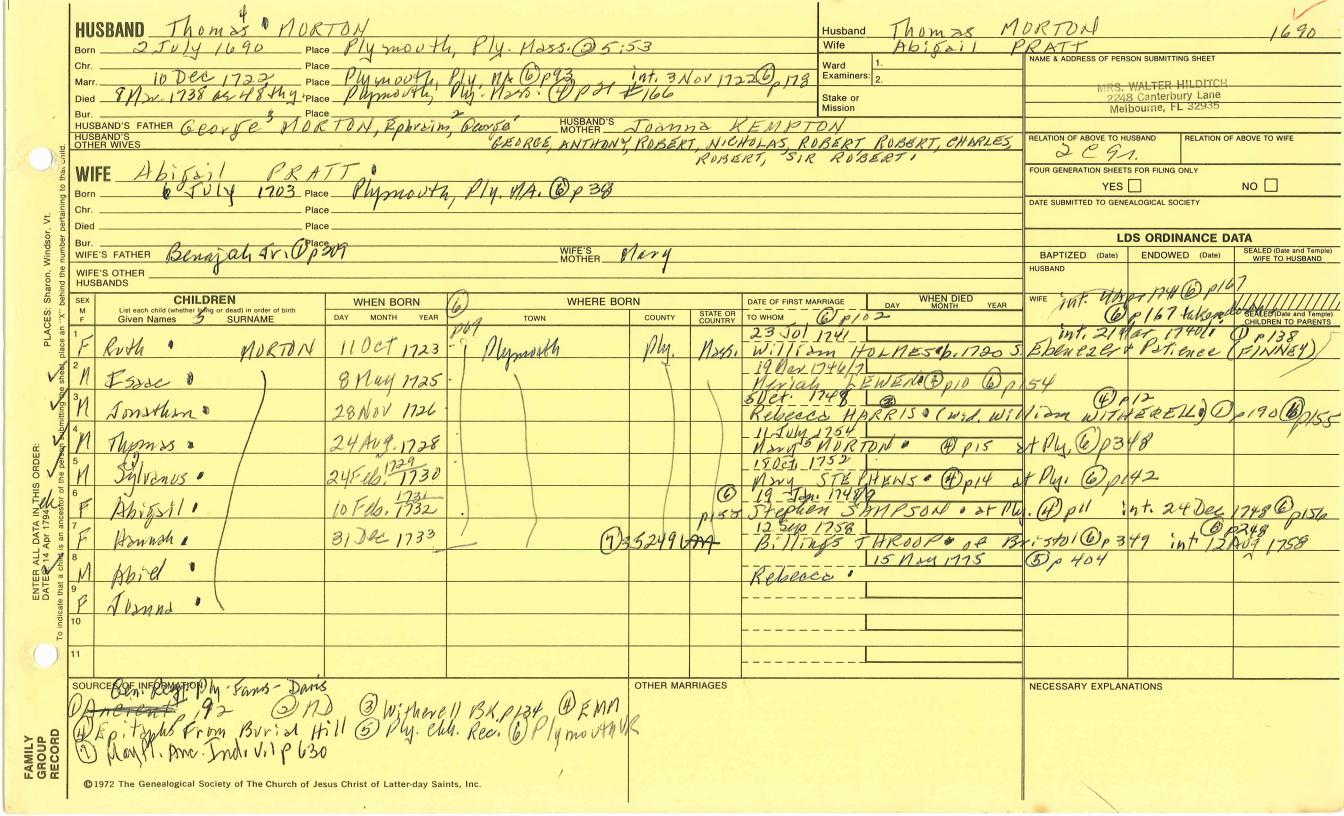 HUSBAND Thomas 4 MORTON
Born 2 July 1690 Place Plymouth, Ply. Mass. ② 5:53
Chr. Place
Marr. 10 Dec 1722 Place Plymouth, Ply. MA ⑥ p93 int. 3 Nov 1722 ⑥ p178
Died 8 Mar. 1738 ae 48thy. Place Plymouth, Ply. Mass. ④ p21 #166
Bur. Place
HUSBAND'S FATHER George 3 MORTON, Ephraim, 2 George 1 HUSBAND'S MOTHER Joanna KEMPTON
HUSBAND'S OTHER WIVES GEORGE, ANTHONY, ROBERT, NICHOLAS, ROBERT ROBERT, CHARLES,
ROBERT, "SIR ROBERT"
WIFE Abigail PRATT
Born 6 July 1703 Place Plymouth, Ply. MA. ⑥ p38
Chr. Place
Died Place
Bur. Place
WIFE'S FATHER Benajah Jr. ① p209 WIFE'S MOTHER Mary
WIFE'S OTHER HUSBANDS
Husband Thomas MORTON 1690
Wife Abigail PRATT
Ward Examiners: 1. 2.
Stake or Mission
NAME & ADDRESS OF PERSON SUBMITTING SHEET
MRS. WALTER HILDITCH
2248 Canterbury Lane
Melbourne, FL 32935
RELATION OF ABOVE TO HUSBAND RELATION OF ABOVE TO WIFE
FOUR GENERATION SHEETS FOR FILING ONLY
YES NO
DATE SUBMITTED TO GENEALOGICAL SOCIETY
LDS ORDINANCE DATA
BAPTIZED (Date) ENDOWED (Date) SEALED (Date and Temple) WIFE TO HUSBAND
HUSBAND
WIFE
SEALED (Date and Temple) CHILDREN TO PARENTS
int. 1741 ⑥ p167
⑥ p167
int. 21 Mar 1740/1 ① p138
SEX M F CHILDREN WHEN BORN ⑥ WHERE BORN DATE OF FIRST MARRIAGE WHEN DIED
List each child (whether living or dead) in order of birth
Given Names 5 SURNAME DAY MONTH YEAR TOWN COUNTY STATE OR COUNTRY TO WHOM DAY MONTH YEAR
⑥ p102
1 F Ruth MORTON 11 Oct 1723 Plymouth Ply. Mass. 23 Jul 1741
William HOLMES b. 1720 S. Ebenezer & Patience (FINNEY)
2 M Isaac 8 May 1725 19 Mar 1746/7
Meriah LEWEN ③ p10 ⑥ p154
3 M Jonathan 28 Nov 1726 5 Oct. 1748 ③ ④ p12
Rebecca HARRIS (wid. William WITHERELL) ① p190 ⑥ p155
4 M Thomas 24 Aug. 1728 11 July 1754
Mary 5 MORTON ④ p15 at Ply. ⑥ p348
5 M Sylvanus 24 Feb. 1729/1730 18 Oct. 1752
Mary STEPHENS ④ p14 at Ply. ⑥ p142
6 F Abigail 10 Feb. 1731/1732 ⑥ p155 19 Jan. 1748/9
Stephen SAMPSON at Ply. ④ p11 int. 24 Dec 1748 ⑥ p156
7 F Hannah 31 Dec 1733 ⑦ 35249 12 Sep 1758
Billings THROOP of Bristol ⑥ p349 int 12 Aug 1758 ⑥ p248
8 M Abiel 15 May 1775 ⑤ p404
Rebecca
9 F Joanna
10
11
SOURCES OF INFORMATION
Gen. Reg. Ply. Fams - Davis
① Ancient p92 ② MD ③ Witherell BK. p134 ④ EMM
④ Epitaphs From Burial Hill ⑤ Ply. Chh. Rec. ⑥ Plymouth VR
⑦ May Fl. Anc. Ind. v. 1 p 630
OTHER MARRIAGES
NECESSARY EXPLANATIONS
©1972 The Genealogical Society of The Church of Jesus Christ of Latter-day Saints, Inc.
FAMILY GROUP RECORD
ENTER ALL DATA IN THIS ORDER:
DATES: 14 Apr 1794
PLACES: Sharon, Windsor, Vt.
To indicate that a child is an ancestor of the person submitting the sheet, place an "X" behind the number pertaining to that child.